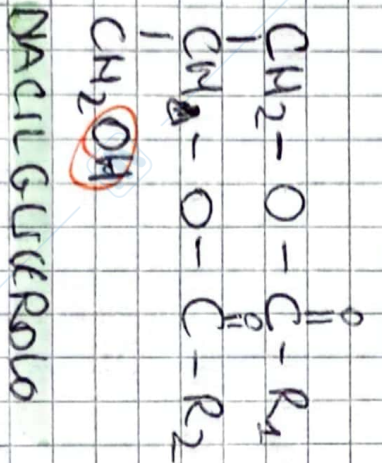 O
||
CH₂ – O – C – R₁
|
O
||
CH – O – C – R₂
|
CH₂OH
DIACILGLICEROLO